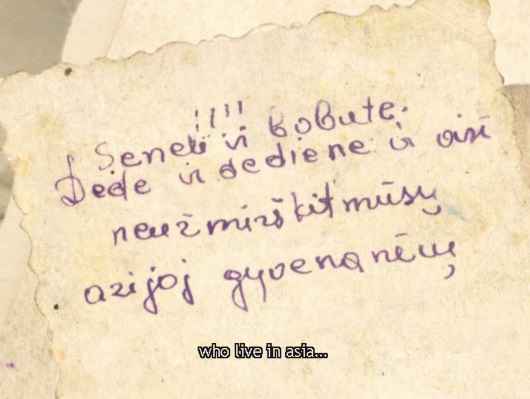 !!!!
Seneli ir bobute.
Dėde ir dediene ir visi
neužmirškit mūsų
azijoj gyvenančių
who live in asia...